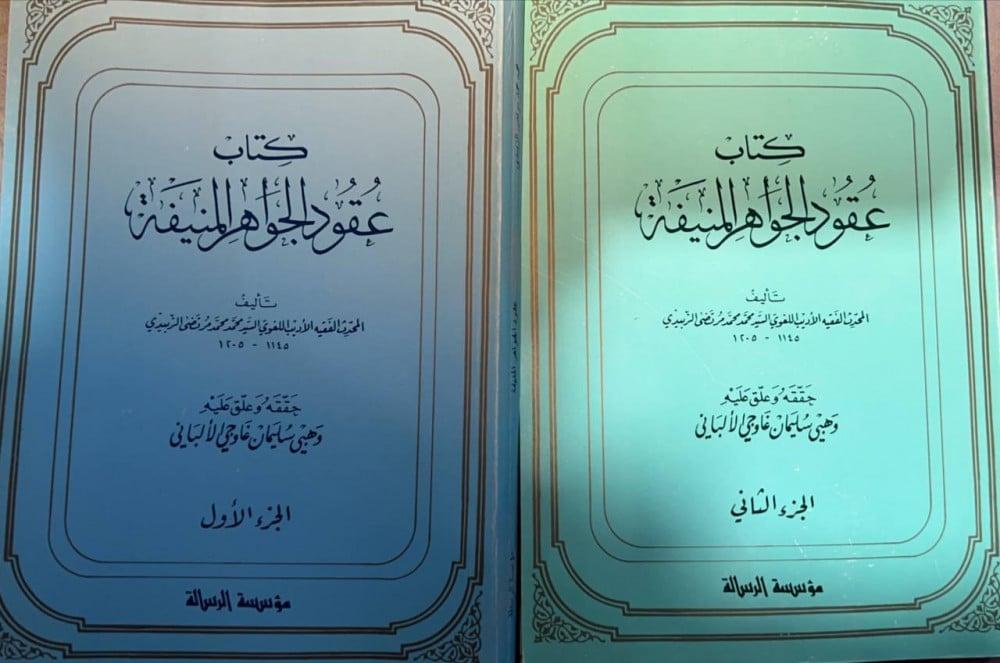 كتاب
عُقُود الجَوَاهِر المُنِيفَة
تأليف
المحدّث الفقيه الأديب اللغوي السيّد محمّد محمّد مرتضى الزّبيدي
١١٤٥ - ١٢٠٥
حَقّقَهُ وَعَلّق عَلَيْهِ
وَهبي سُليمان غَاوجي الألبَاني
الجزء الأول
مؤسسة الرسالة
عقود الجواهر المنيفة
كتاب
عُقُود الجَوَاهِر المُنِيفَة
تأليف
المحدّث الفقيه الأديب اللغوي السيّد محمّد محمّد مرتضى الزّبيدي
١١٤٥ - ١٢٠٥
حَقّقَهُ وَعَلّق عَلَيْهِ
وَهبي سُليمان غَاوجي الألبَاني
الجزء الثاني
مؤسسة الرسالة